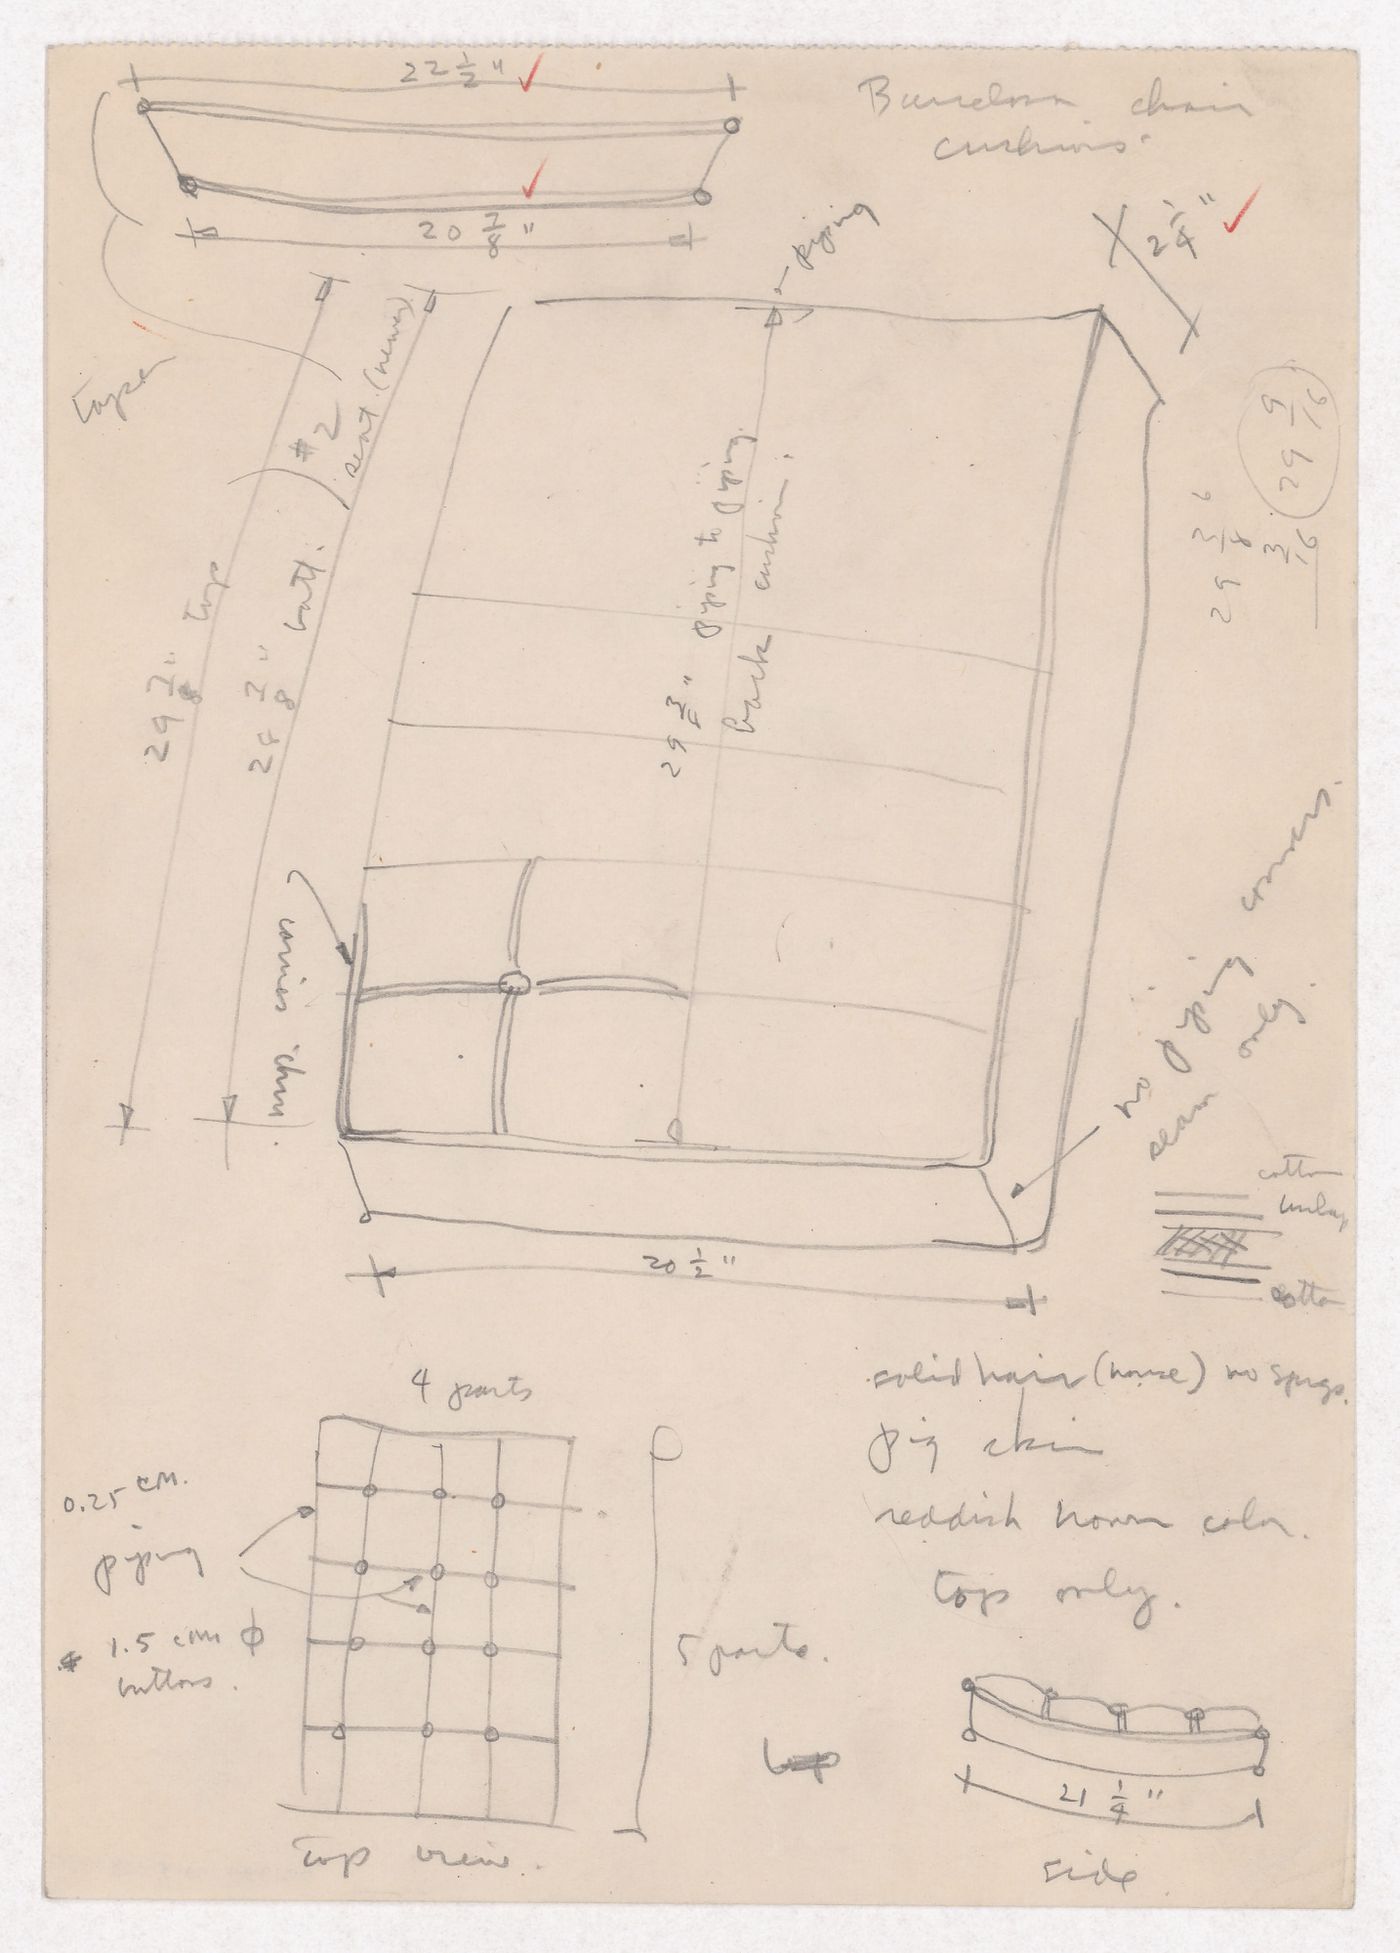 22 1/2"
Barcelona chair
cushions.
20 7/8"
2 1/4"
piping
taper
#2
seat. (newer)
29 7/8" top
24 7/8" bott.
29 3/8" piping to piping.
back cushion.
29 9/16
29 3/8 6
3/16
no piping corners.
seam only.
cotton
burlap
cotton
20 1/2"
4 parts
0.25 cm.
piping
1.5 cm ϕ
buttons.
5 parts.
top view.
solid hair (horse) no spngs.
pig skin
reddish brown color.
top only.
21 1/4"
side.